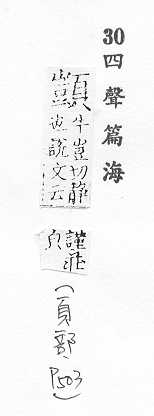 30四聲篇海
顗牛豈切靜
也說文云
謹莊
皃
(頁部 P503)